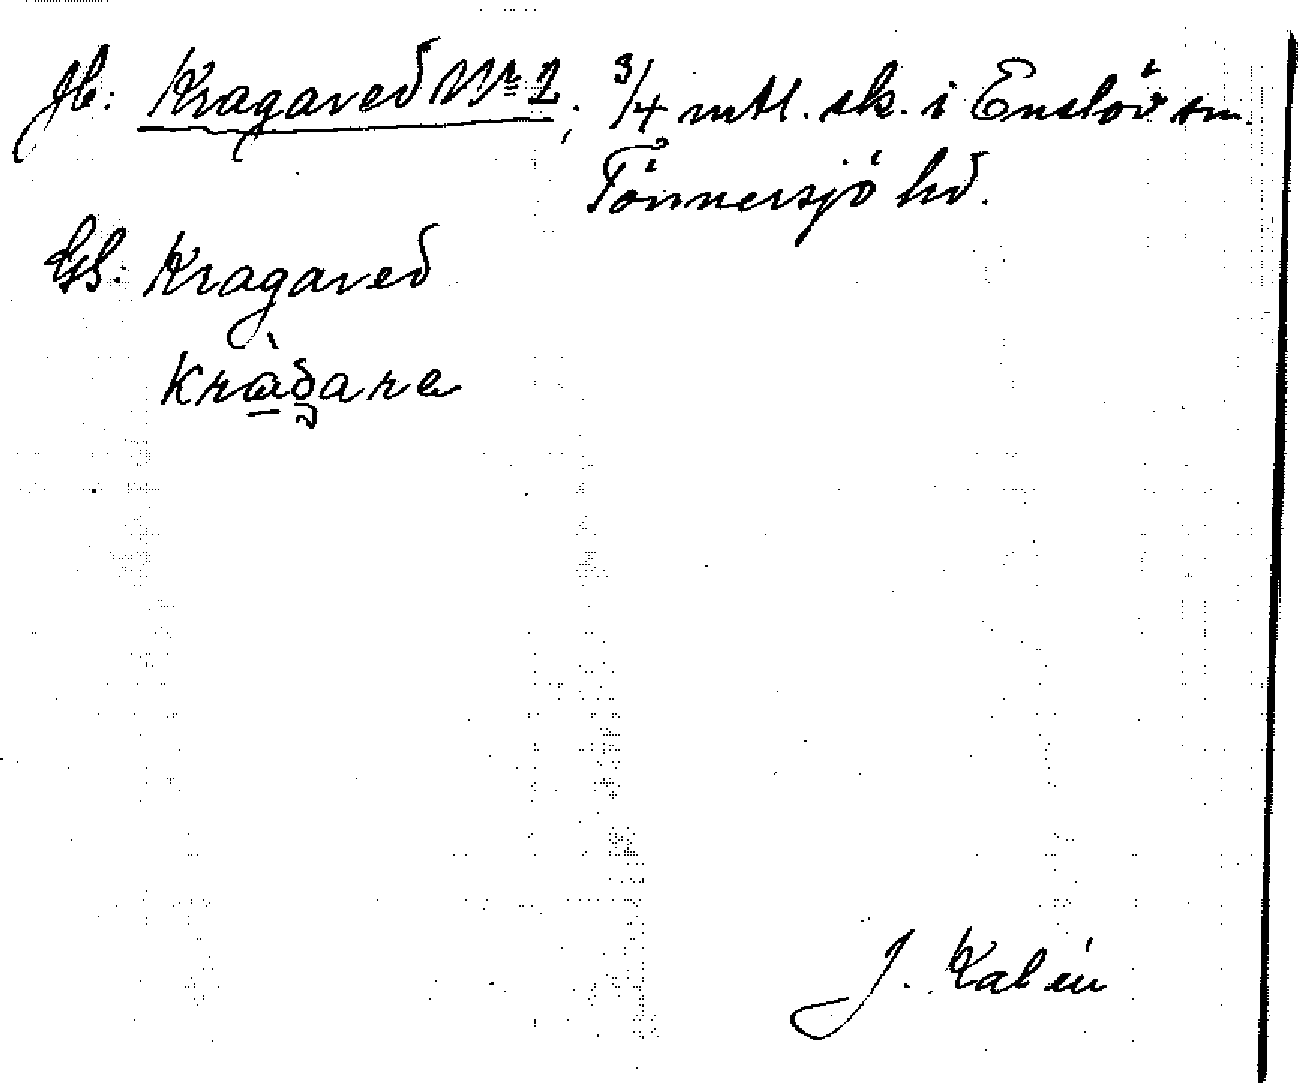 Jb: Kragared Nr 2; 3/4 mtl. sk. i Enslöv sn.
Tönnersjö hd.
GS: Kragared
J. Kalén